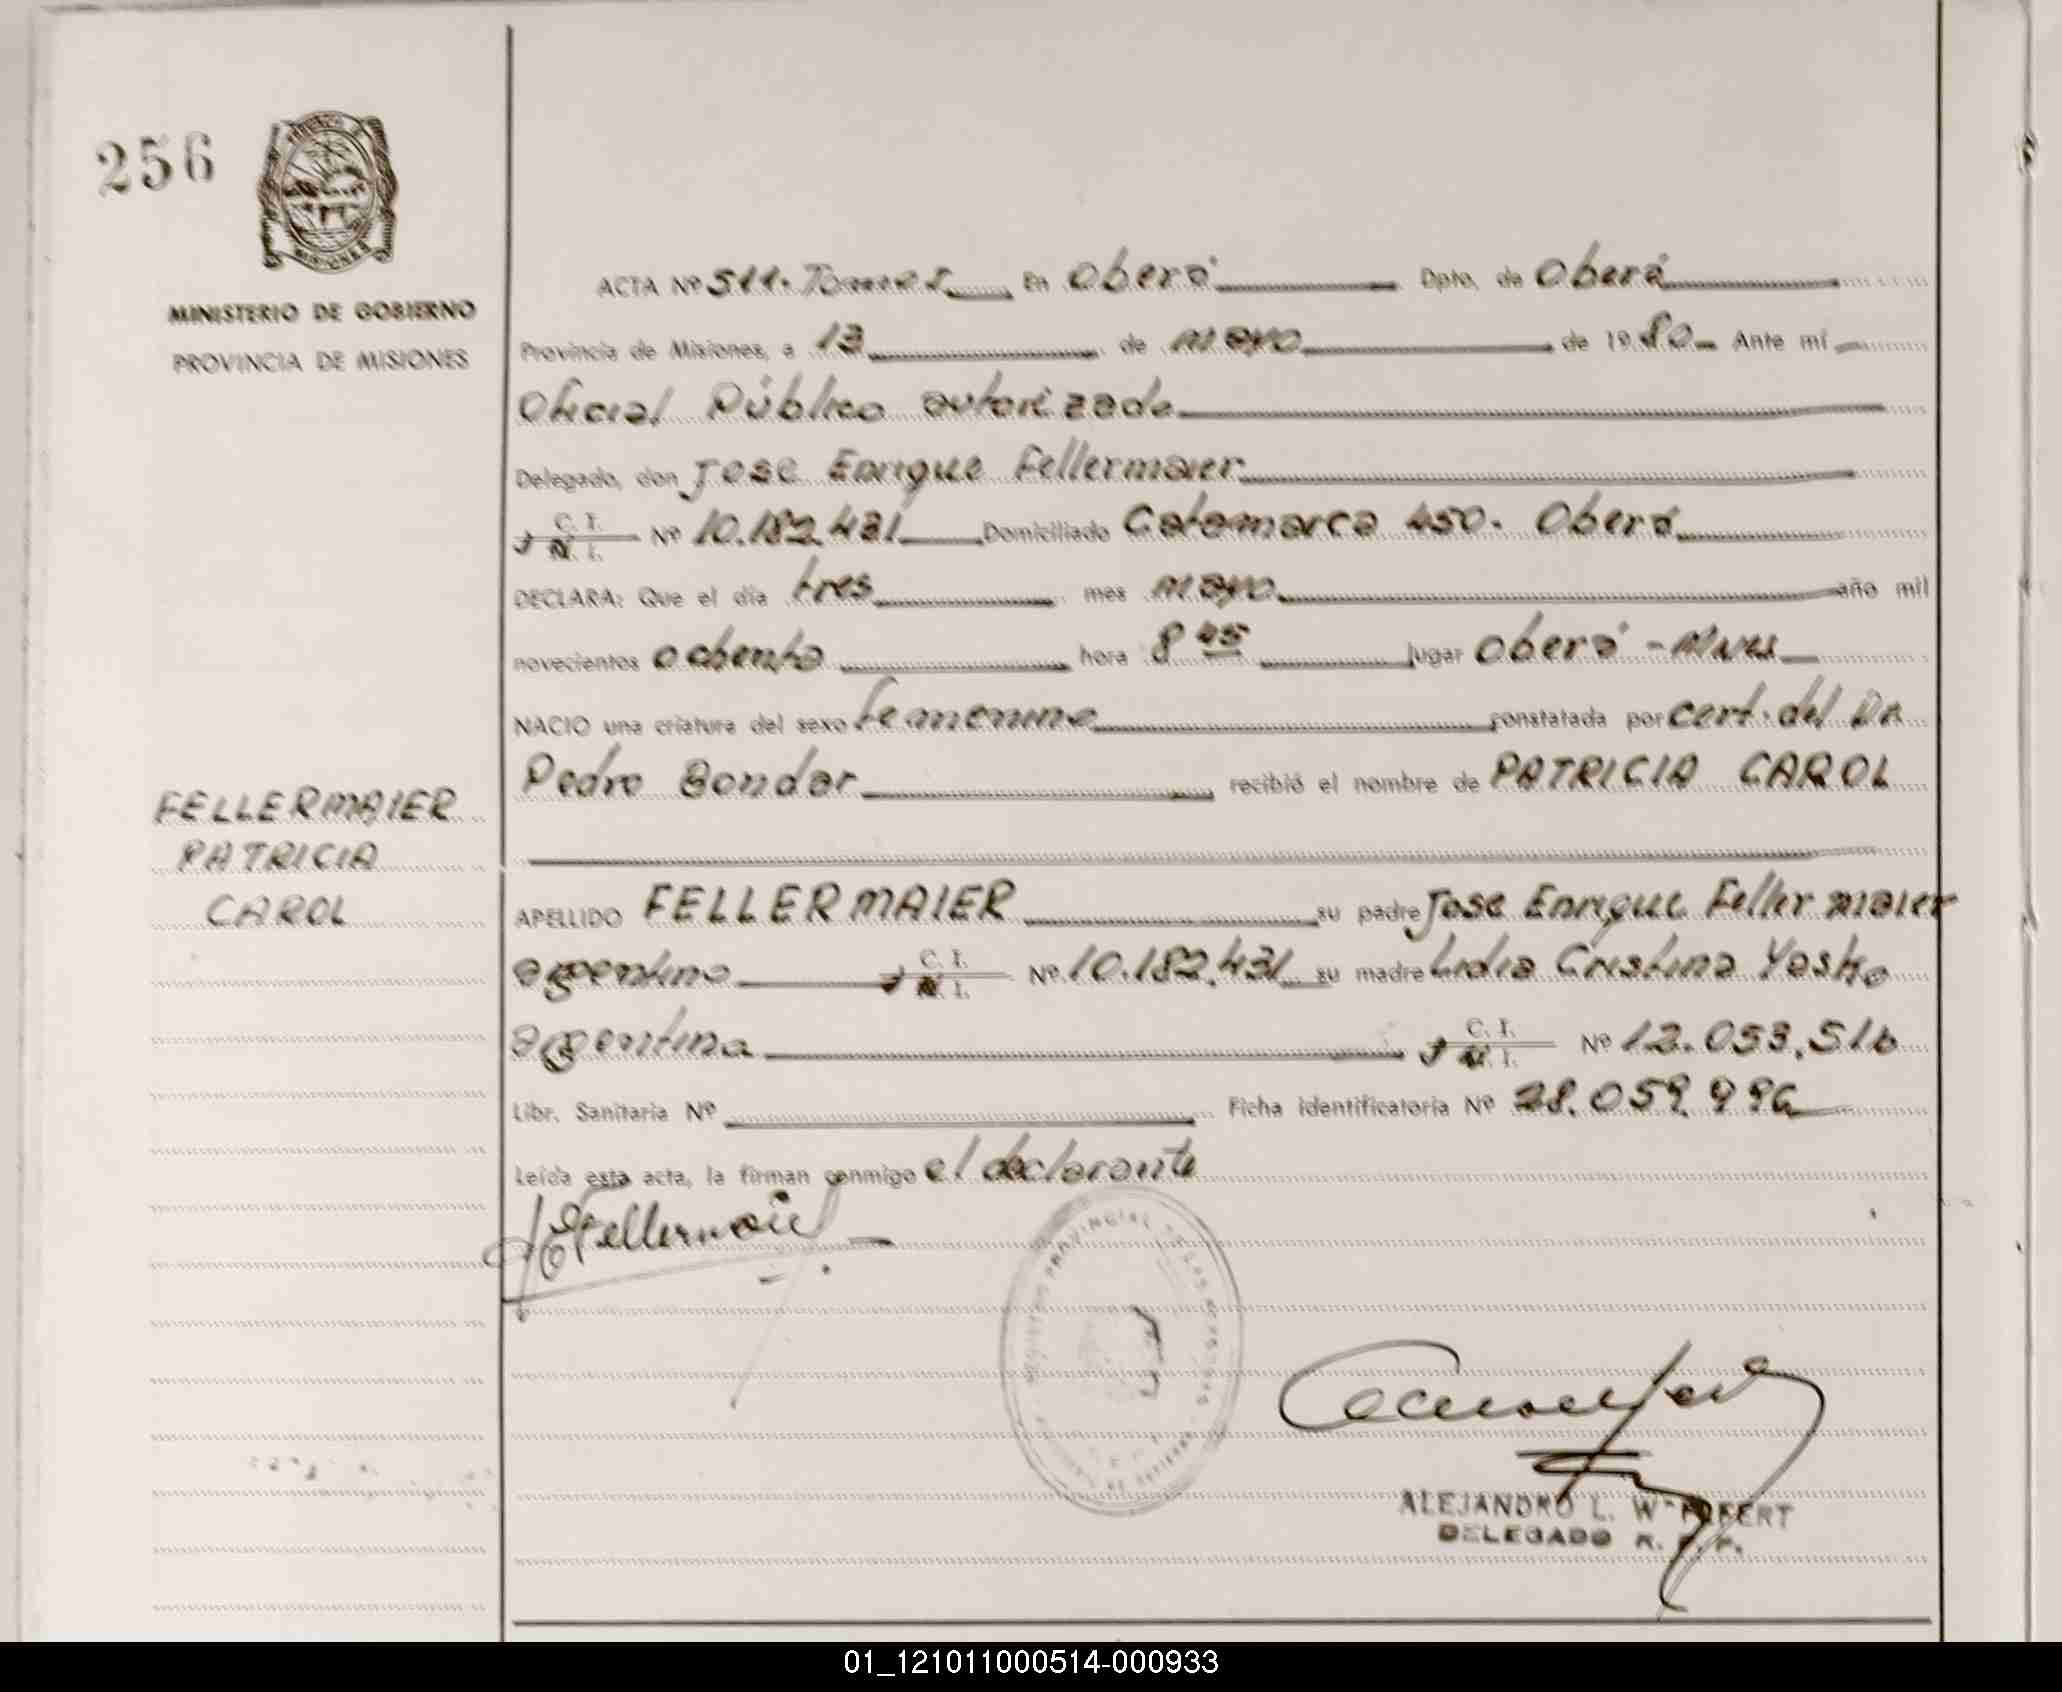 256
MISIONES
MINISTERIO DE GOBIERNO
PROVINCIA DE MISIONES
ACTA Nº 511. En Oberá Dpto. de Oberá
Provincia de Misiones, a 13 de mayo de 1980 Ante mí
Oficial Público autorizado
Delegado, don Jose Enrique Fellermaier
C. I. Nº 10.182.431 Domiciliado Catamarca 450. Oberá
DECLARA: Que el día tres mes mayo año mil
novecientos ochenta hora 8 45 lugar Oberá - Mnes
NACIO una criatura del sexo femenino constatada por cert. del Dr
Pedro Bondar recibió el nombre de PATRICIA CAROL
FELLERMAIER
PATRICIA
CAROL
APELLIDO FELLERMAIER su padre Jose Enrique Fellermaier
argentino C. I. Nº 10.182.431 su madre Lidia Cristina Yasko
argentina C. I. Nº 12.053.516
Libr. Sanitaria Nº Ficha identificatoria Nº 28.059.996
Leída esta acta, la firman conmigo el declarante
Fellermaier
ALEJANDRO L. W.
DELEGADO R. P. P.
01_121011000514-000933